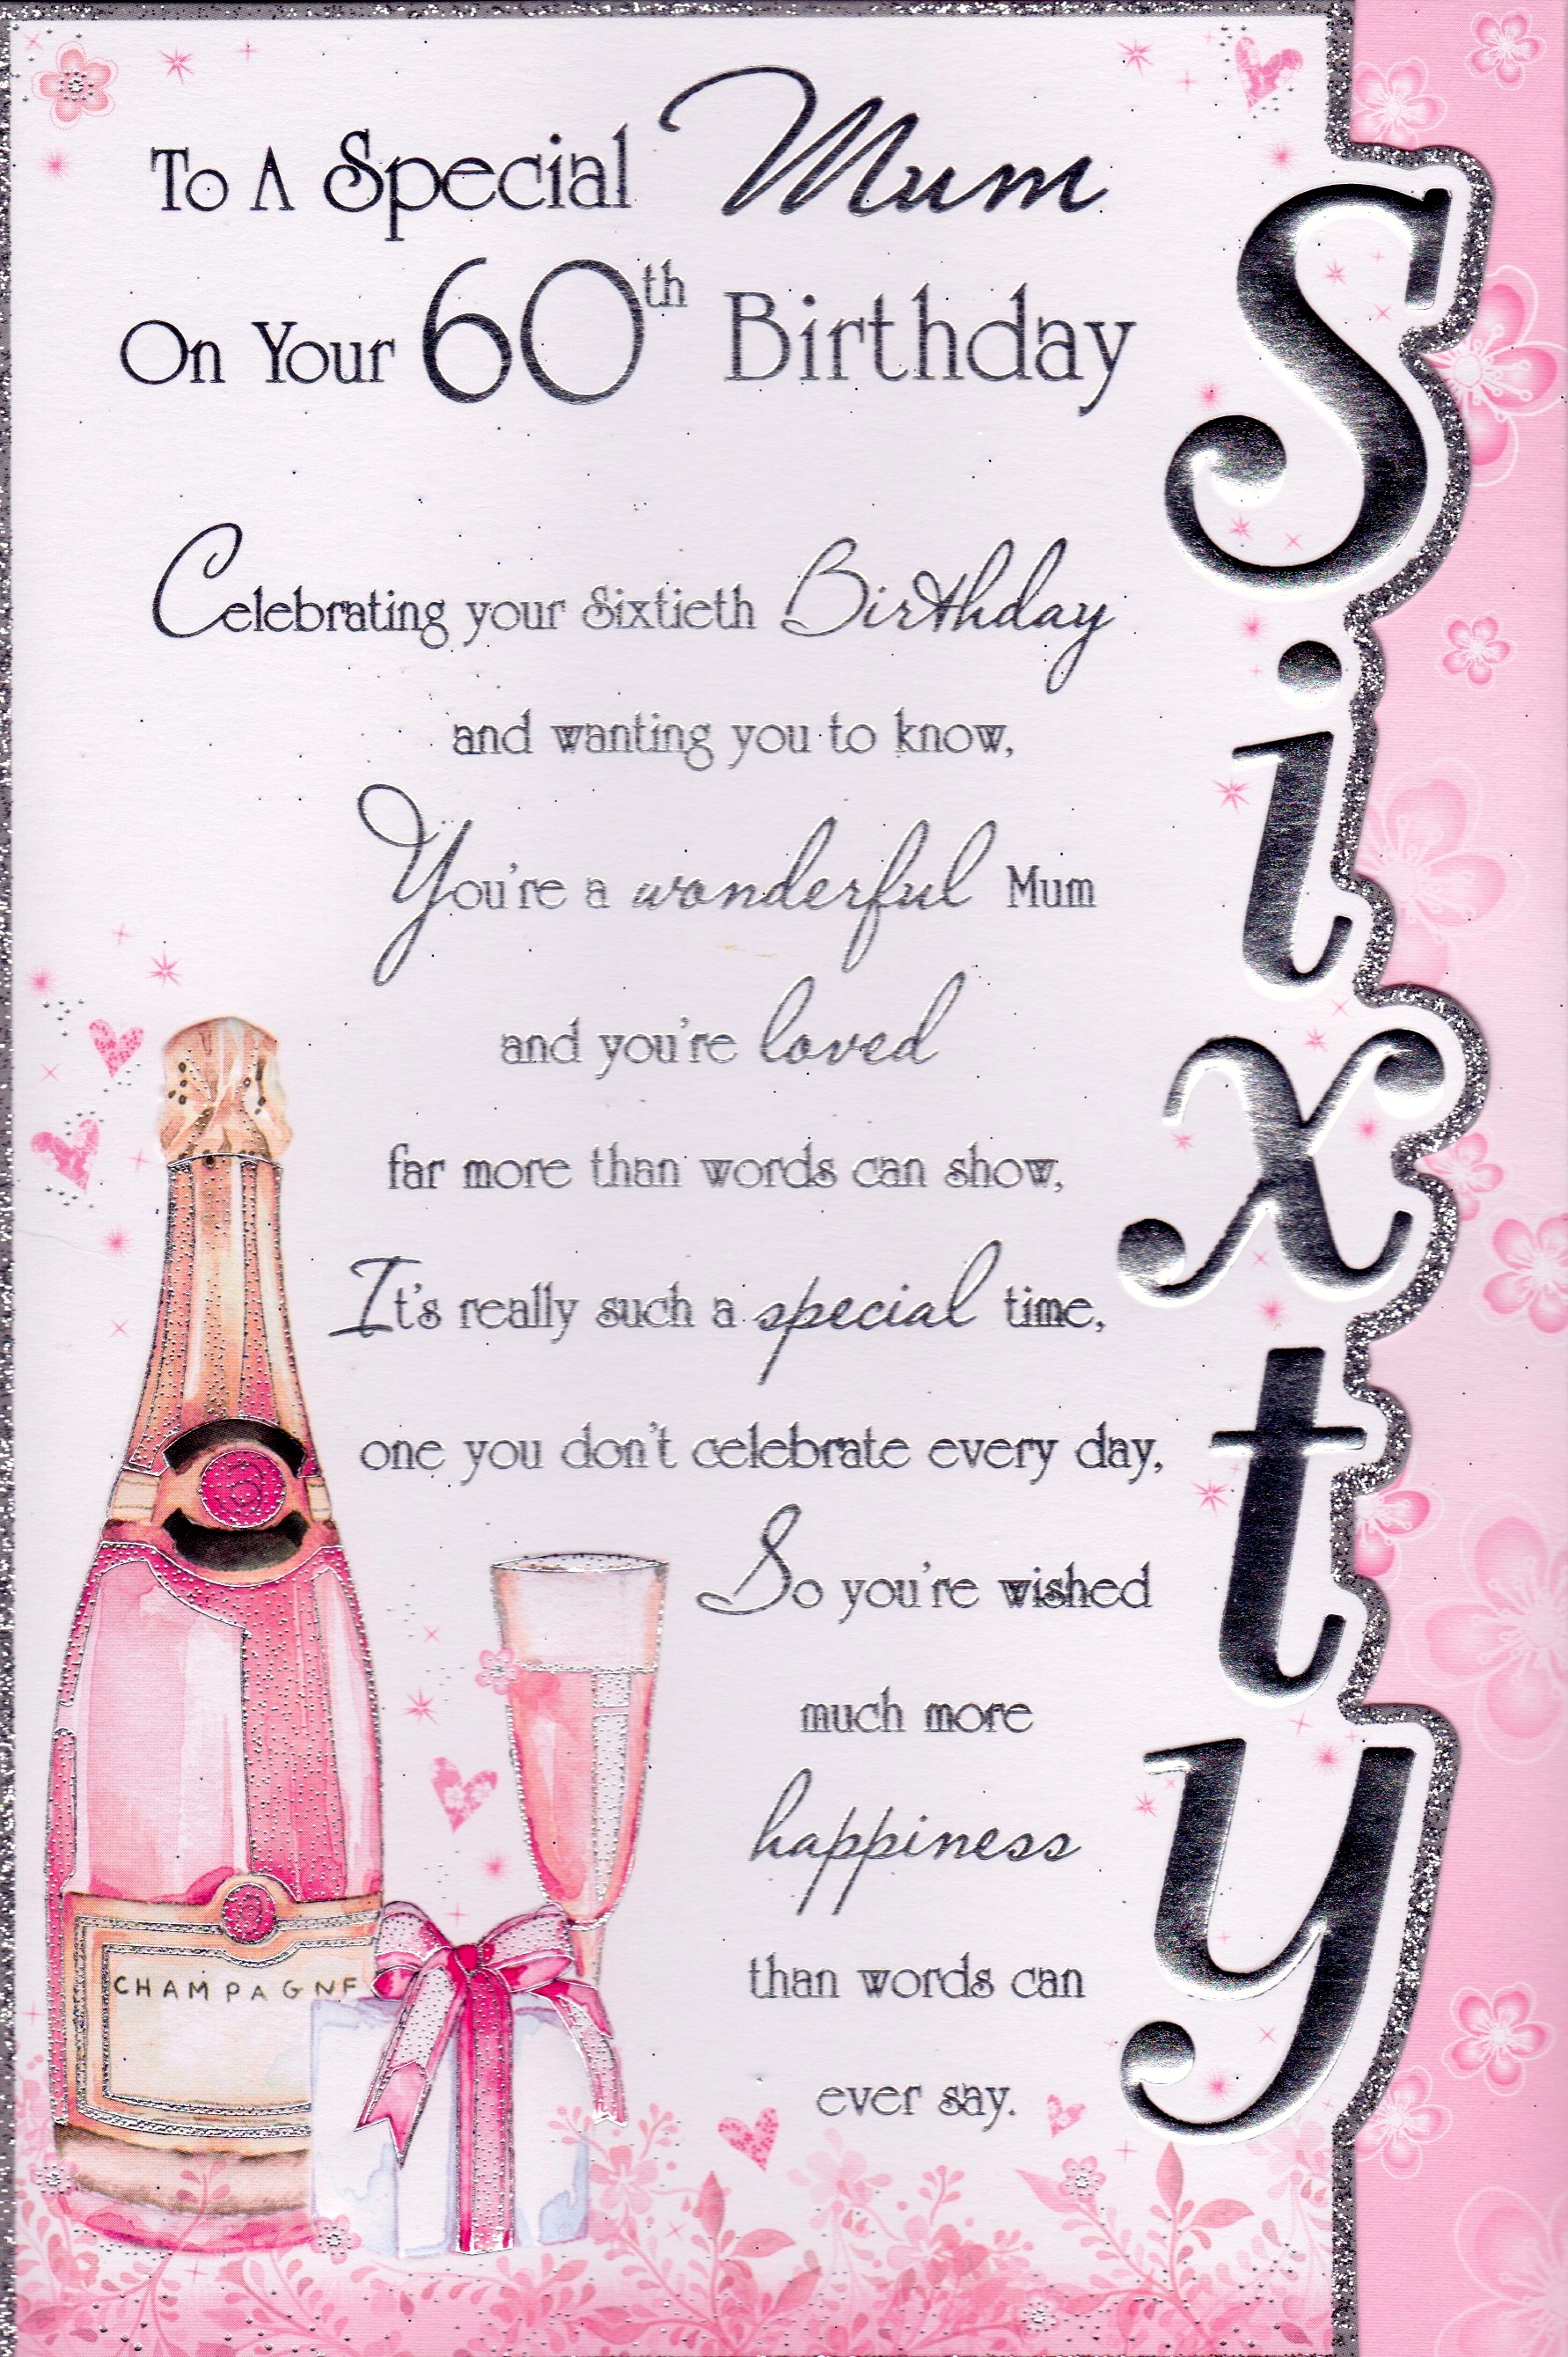 To A Special Mum
On Your 60th Birthday
Celebrating your Sixtieth Birthday
and wanting you to know,
You're a wonderful Mum
and you're loved
far more than words can show,
It's really such a special time,
one you don't celebrate every day,
So you're wished
much more
happiness
than words can
ever say.
Sixty
CHAMPAGNE